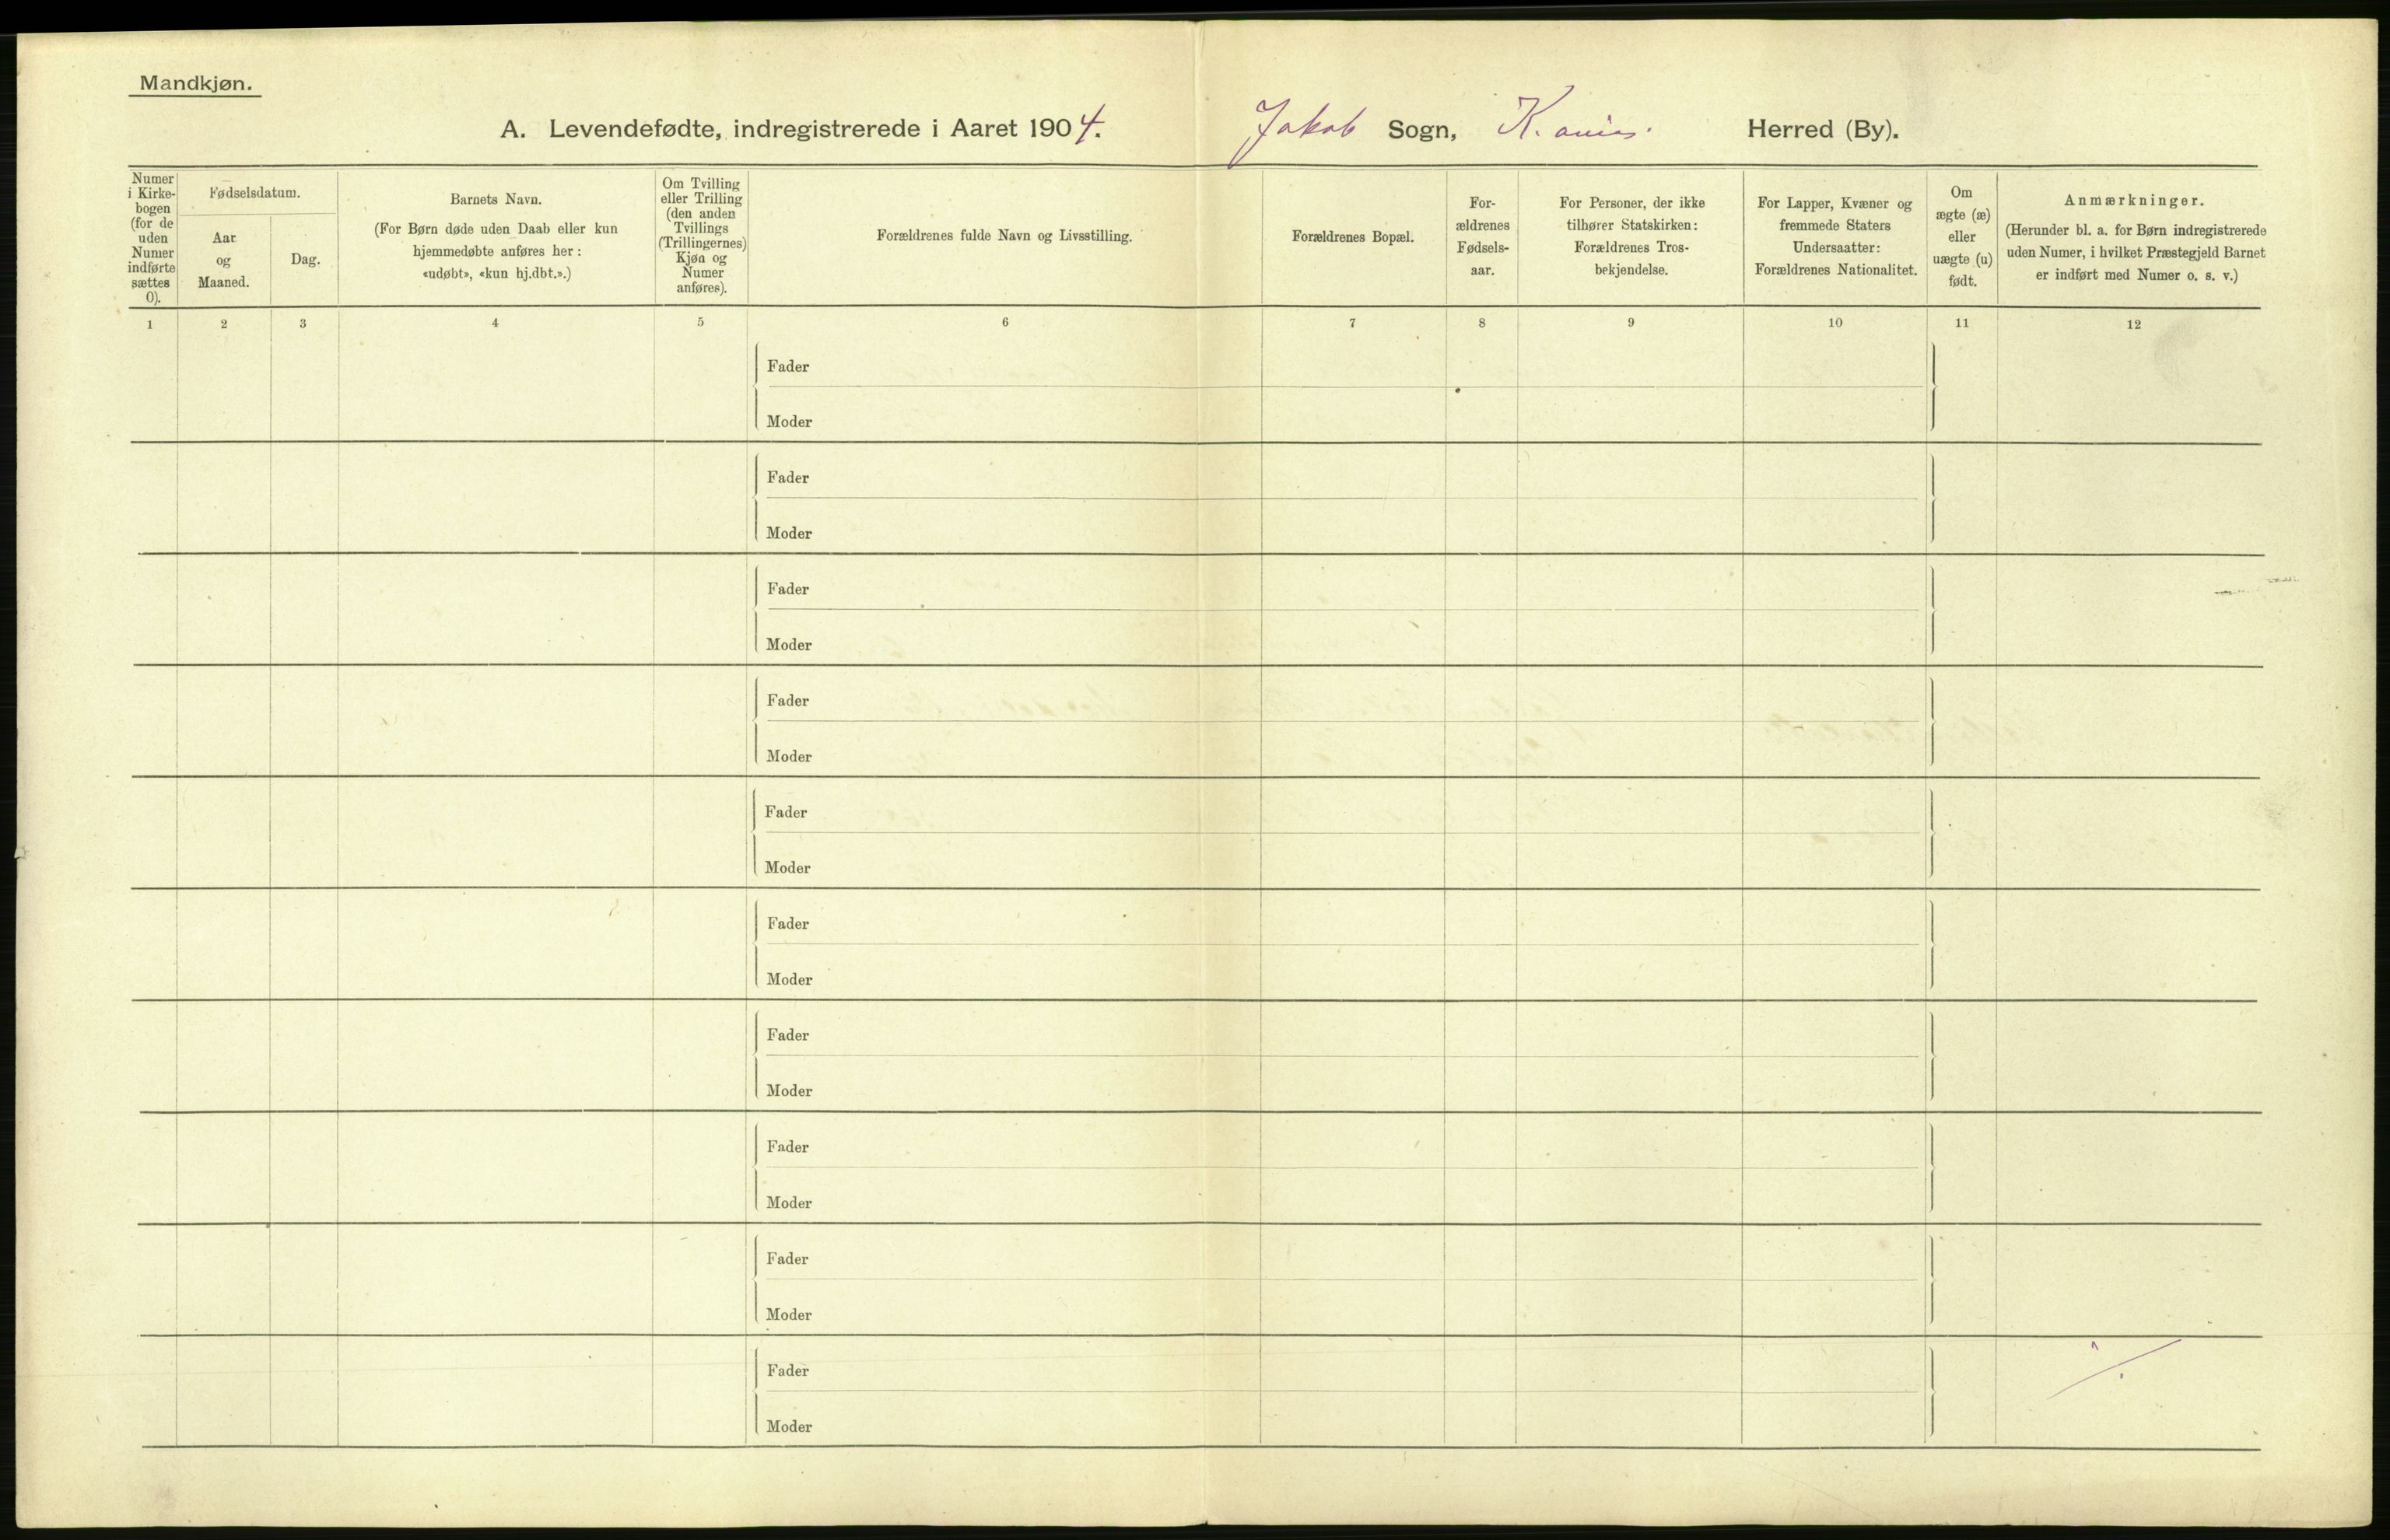 Mandkjøn.
A. Levendefødte, indregistrerede i Aaret 1904. Jakob Sogn, K.ania. Herred (By).
Numer
i Kirke-
bogen
(for de
uden
Numer
indførte
sættes
0).
Fødselsdatum.
Aar
og
Maaned.
Dag.
Barnets Navn.
(For Børn døde uden Daab eller kun
hjemmedøbte anføres her:
«udøbt», «kun hj.dbt.».)
Om Tvilling
eller Trilling
(den anden
Tvillings
(Trillingernes)
Kjøn og
Numer
anføres).
Forældrenes fulde Navn og Livsstilling.
Forældrenes Bopæl.
For-
ældrenes
Fødsels-
aar.
For Personer, der ikke
tilhører Statskirken:
Forældrenes Tros-
bekjendelse.
For Lapper, Kvæner og
fremmede Staters
Undersaatter:
Forældrenes Nationalitet.
Om
ægte (æ)
eller
uægte (u)
født.
Anmærkninger.
(Herunder bl. a. for Børn indregistrerede
uden Numer, i hvilket Præstegjeld Barnet
er indført med Numer o. s. v.)
1 2 3 4 5 6 7 8 9 10 11 12
Fader
Moder
Fader
Moder
Fader
Moder
Fader
Moder
Fader
Moder
Fader
Moder
Fader
Moder
Fader
Moder
Fader
Moder
Fader
Moder